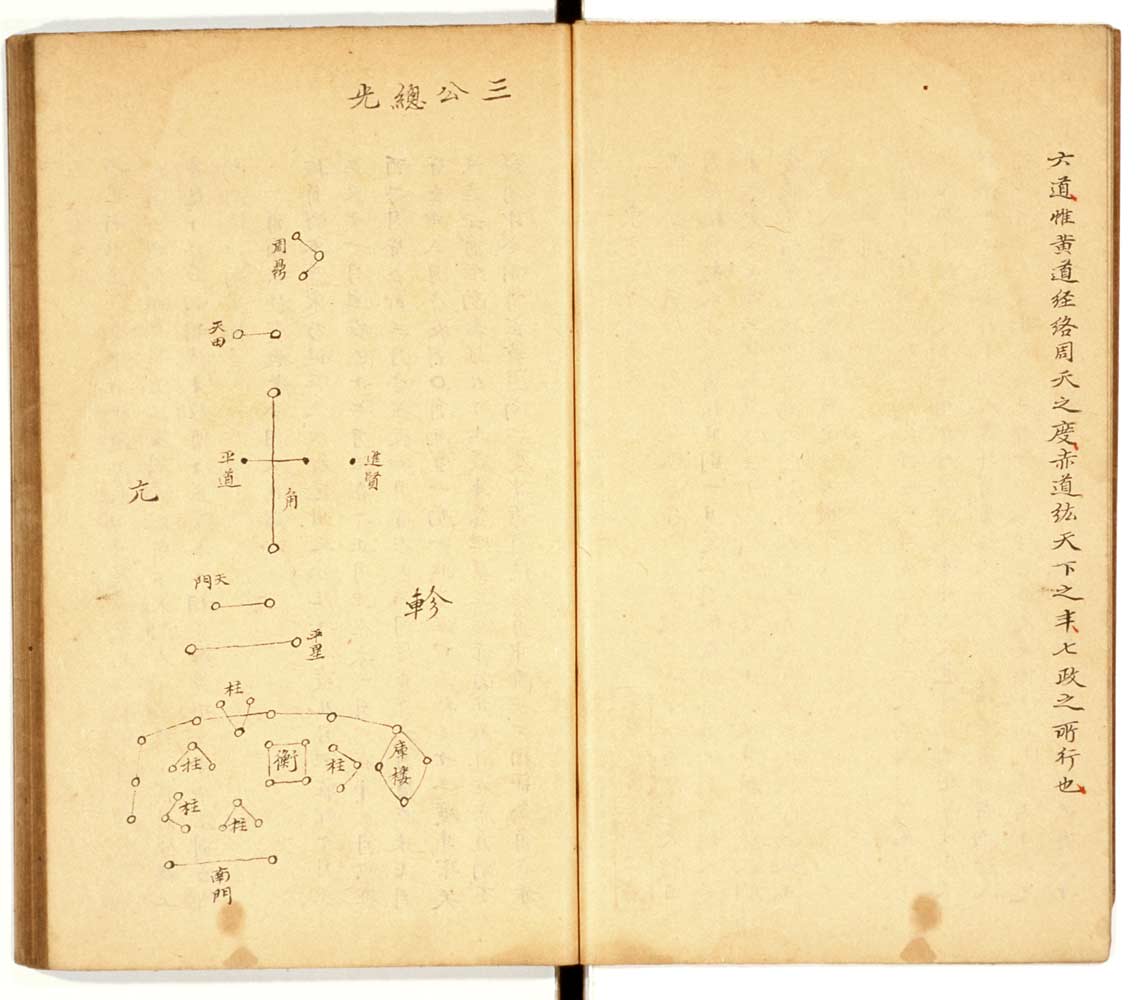 六道惟黄道经络周天之度赤道纮天下之 七政之所行也
三公總光
周鼎
天田
進賢
平道
角
亢
軫
天門
平星
柱
庫樓
柱
衡
柱
柱
柱
南門